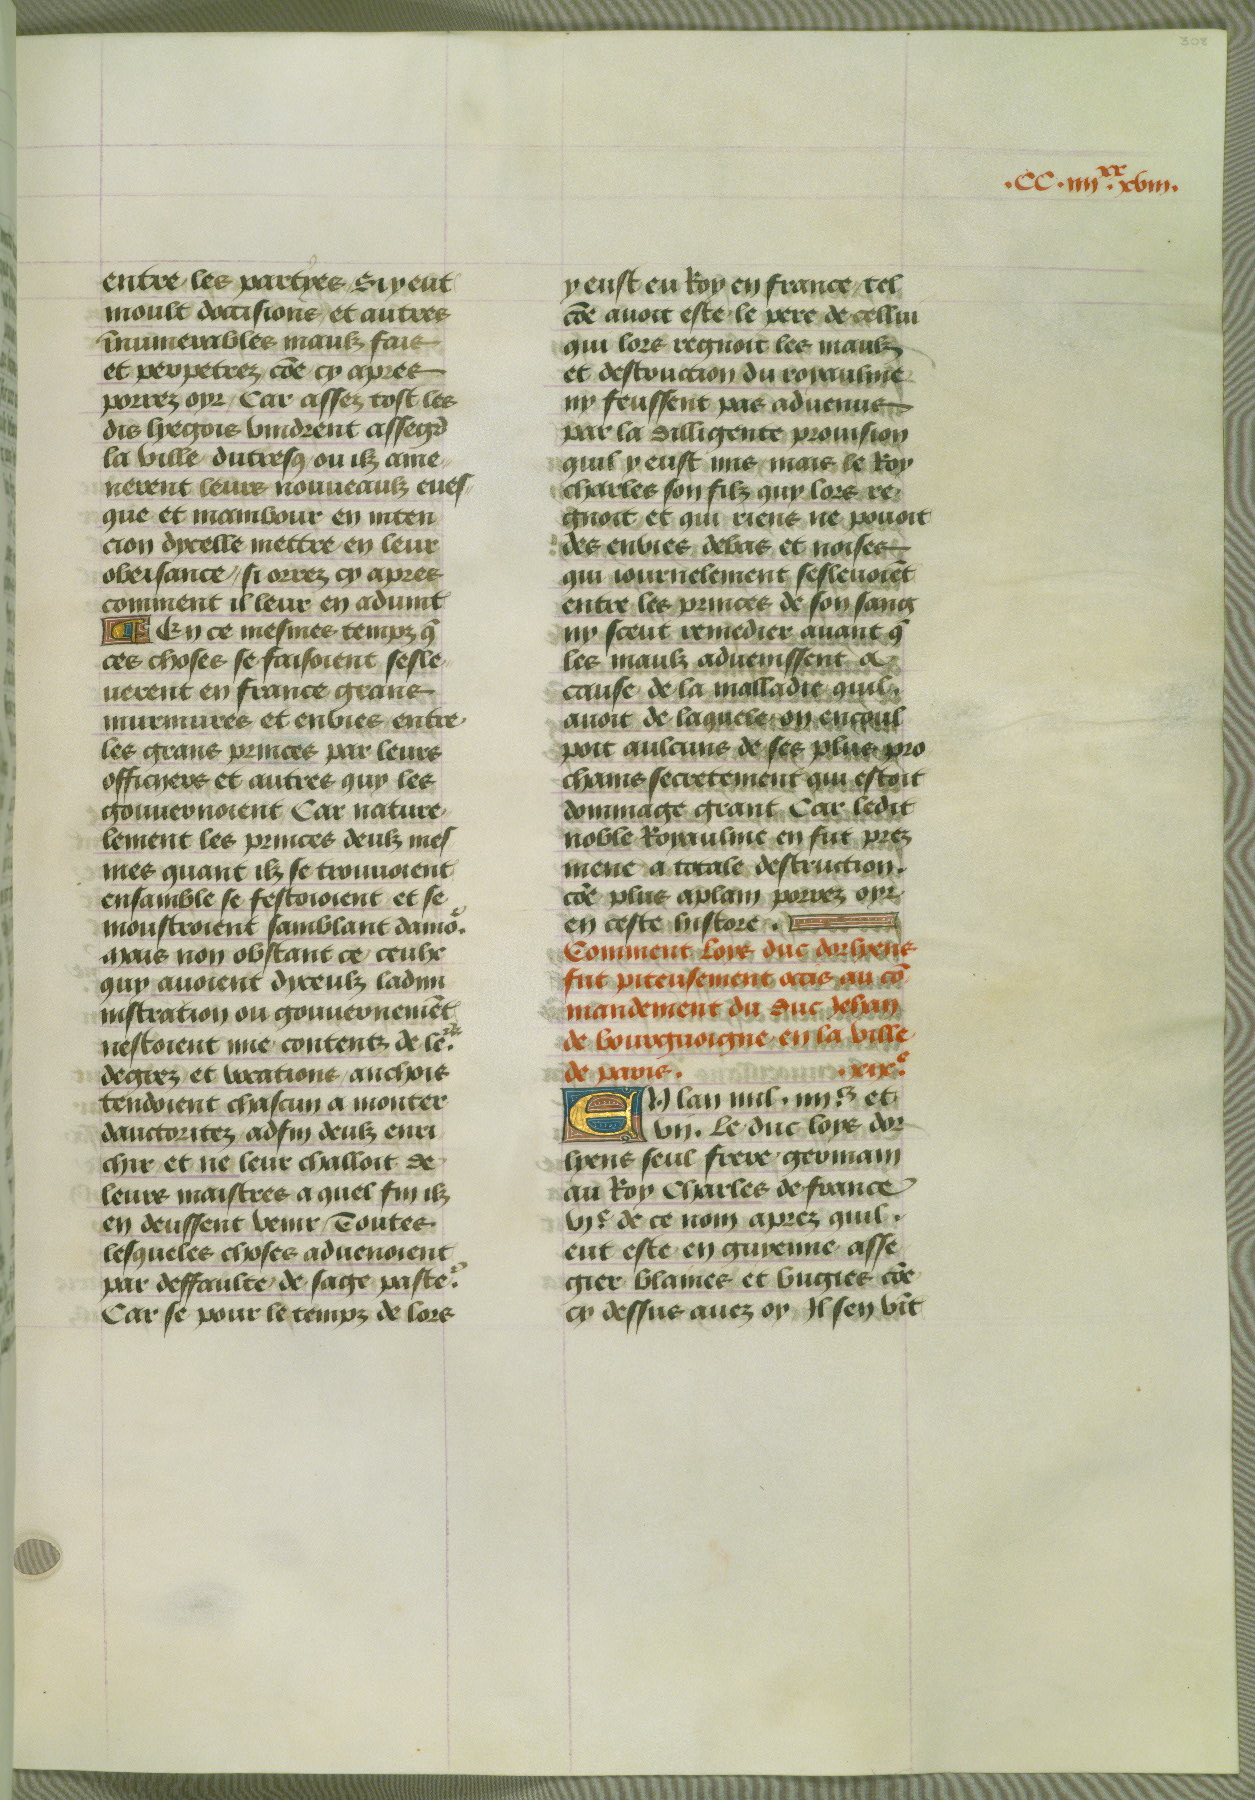 308
.CC.iiii xx .xviii.
entre les partyes Si y eut
moult doccisions et autres
īnumerables maulz fais
et perpetrez cōe cy apres
porrez oyr Car assez tost les
dis lyegois vindrent assegr̄
la ville dutresq̨ ou ilz ame
nerent leurs nouueaulz eues
que et mambour en inten
cion dycelle mettre en leur
obeisance / si orrez cy apres
comment il leur en aduint
En ce mesmes tempz q̄
ces choses se faisoient sesle
uerent en france grans
murmures et enuies entre
les grans princes par leurs
officyers et autres quy les
gouuernoient Car nature
lement les princes deulz mes
mes quant ilz se trouuoient
ensamble se festoioient et se
moustroient samblant damoᵉ.
mais non obstant ce ceulx
quy auoient dyceulz ladmi
nistration ou gouuernemēt
nestoient mie contentz de leᵘʳˢ.
degrez et vocations anchois
tendoient chascun a monter
dauctoritez adfin deulz enri
chir et ne leur challoit de
leurs maistres a quel fin ilz
en deussent venir / Toutes
lesqueles choses aduenoient
par deffaulte de sage pasteʳ.
Car se pour le tempz de lors
y eust eu Roy en france tel
cōe auoit este le pere de cellui
qui lors regnoit les maulz
et destruction du royaulme
ny feussent pas aduenus
par la dilligente prouision
quil y eust mis mais le Roy
charles son filz quy lors re
gnoit et qui riens ne pouoit
des enuies debas et noises
qui iournelement sesleuoiēt
entre les princes de son sang
ny sceut remedier auant q̄
les maulz aduenissent a
cause de la malladie quil
auoit de laquele on encoul
poit aulcuns de ses plus pro
chains secretement qui estoit
dommage grant Car ledit
noble Royaulme en fut prez
mene a totale destruction.
cōe plus aplain porrez oyr
en ceste histore .
Comment Loys duc dorlyens
fut piteusement occis au cō
mandement du Duc Jehan
de bourguoigne en la ville
de paris . .xixᵉ.
EN lan mil . iiii.ᶜ et
vii. Le duc loys dor
lyens seul frere germain
au Roy Charles de france
vi.ᵉ de ce nom aprez quil
eut este en guyenne asse
gier blaines et bugies cōe
cy dessus auez oy Il sen vīt